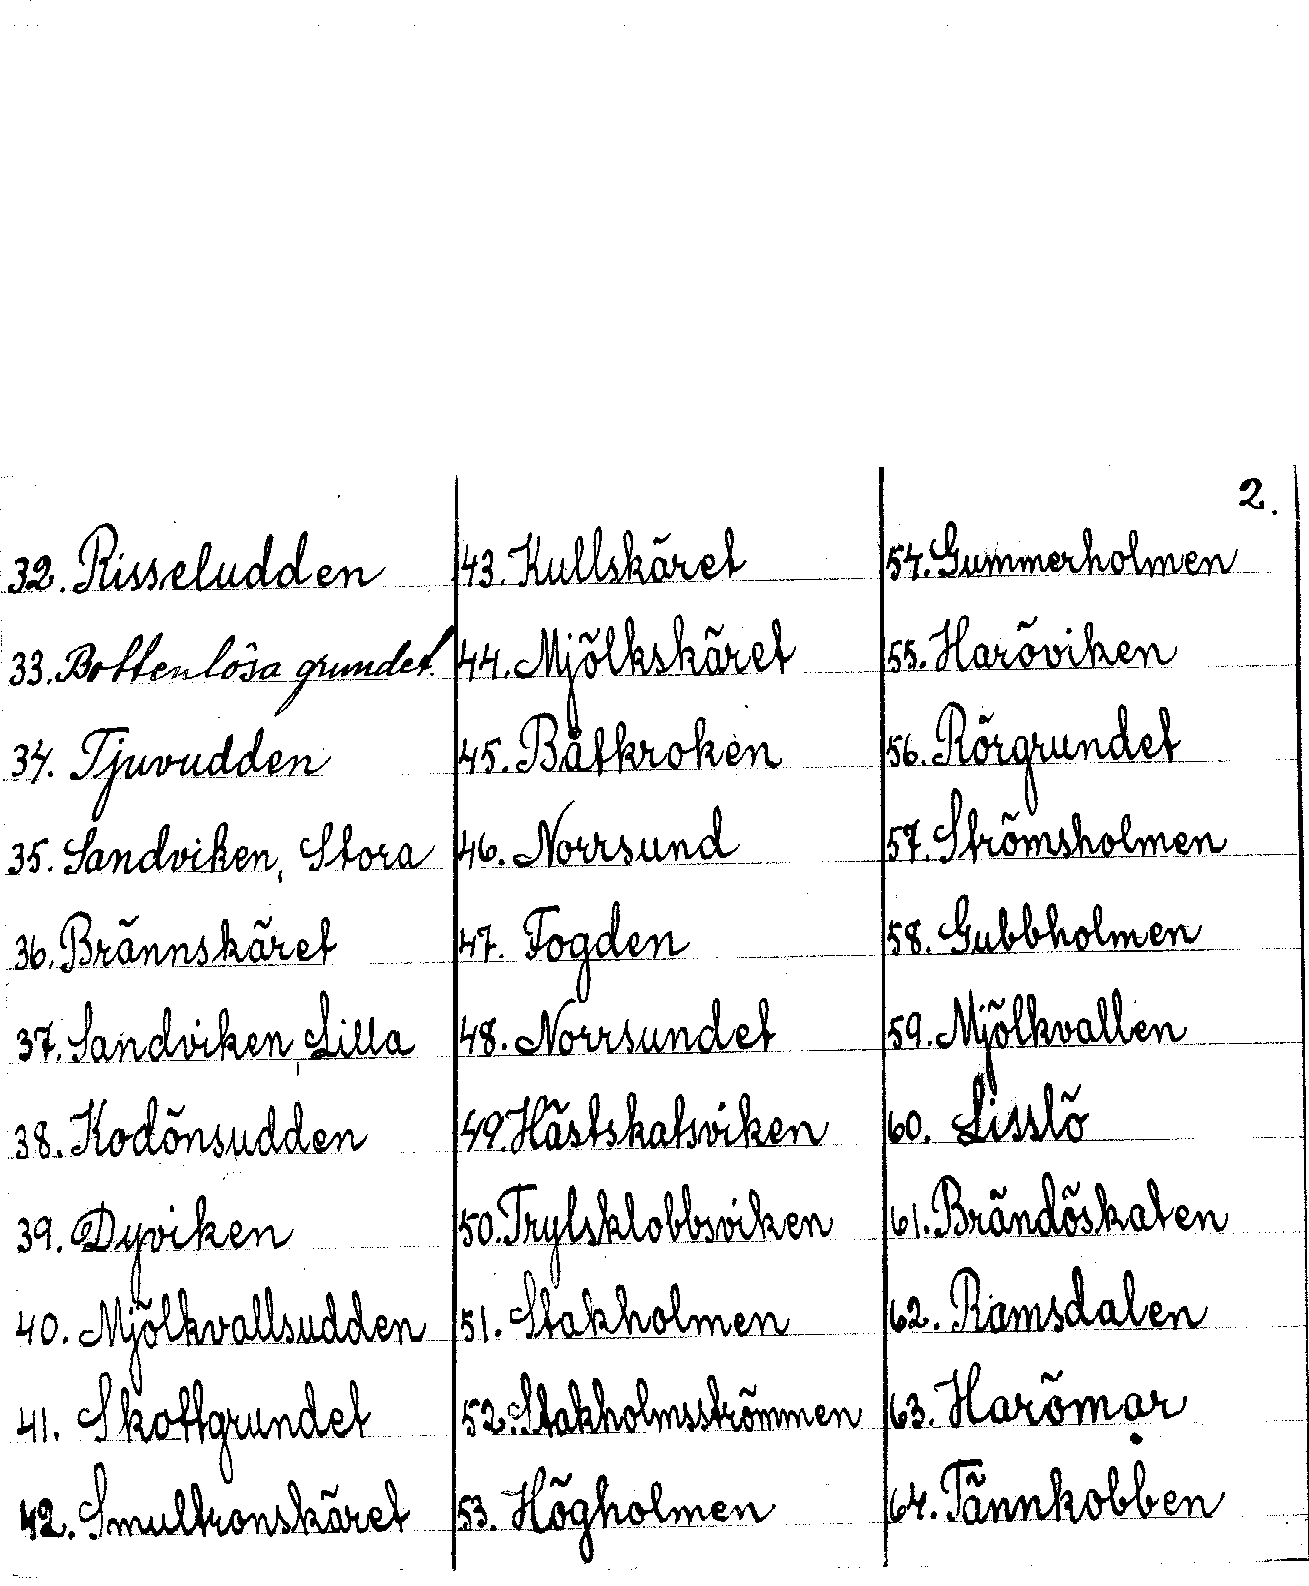 2.
32. Risseludden
33. Bottenlösa grundet.
34. Tjuvudden
35. Sandviken, Stora
36. Brännskäret
37. Sandviken, Lilla
38. Kodönsudden
39. Dyviken
40. Mjölkvallsudden
41. Skottgrundet
42. Smultronskäret
43. Kullskäret
44. Mjölkskäret
45. Båtkroken
46. Norrsund
47. Fogden
48. Norrsundet
49. Hästskatsviken
50. Trylsklobbsviken
51. Stakholmen
52. Stakholmsströmmen
53. Högholmen
54. Gummerholmen
55. Haröviken
56. Rörgrundet
57. Strömsholmen
58. Gubbholmen
59. Mjölkvallen
60. Lisslö
61. Brändöskaten
62. Ramsdalen
63. Harömar
64. Tännkobben